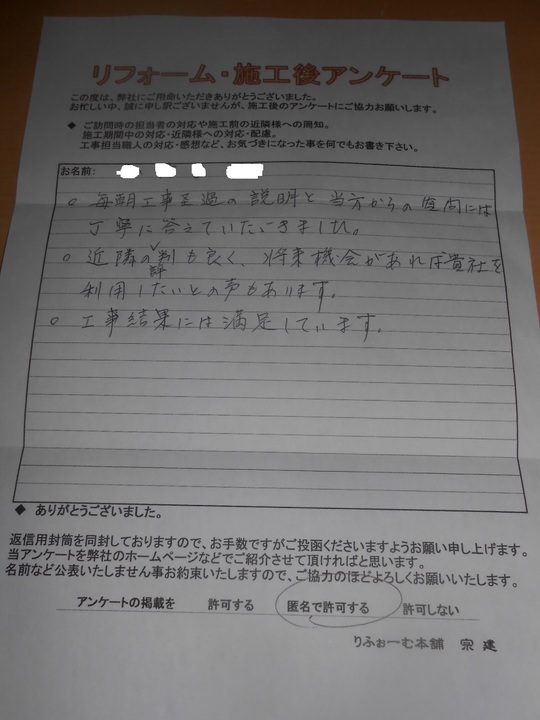 リフォーム・施工後アンケート
この度は、弊社にご用命いただきありがとうございました。
お忙しい中、誠に申し訳ございませんが、施工後のアンケートにご協力お願いします。
◆ ご訪問時の担当者の対応や施工前の近隣様への周知。
施工期間中の対応・近隣様への対応・配慮。
工事担当職人の対応・感想など、お気づきになった事を何でもお書き下さい。
お名前:
○ 毎朝工事至過の説明と当方からの質問には
丁寧に答えていただきました。
○ 近隣の評判も良く、将来機会があれば貴社を
利用したいとの声もあります。
○ 工事結果には満足しています。
◆ ありがとうございました。
返信用封筒を同封しておりますので、お手数ですがご投函くださいますようお願い申し上げます。
当アンケートを弊社のホームページなどでご紹介させて頂ければと思います。
名前など公表いたしません事お約束いたしますので、ご協力のほどよろしくお願いいたします。
アンケートの掲載を 許可する 匿名で許可する 許可しない
りふぉーむ本舗 宗建